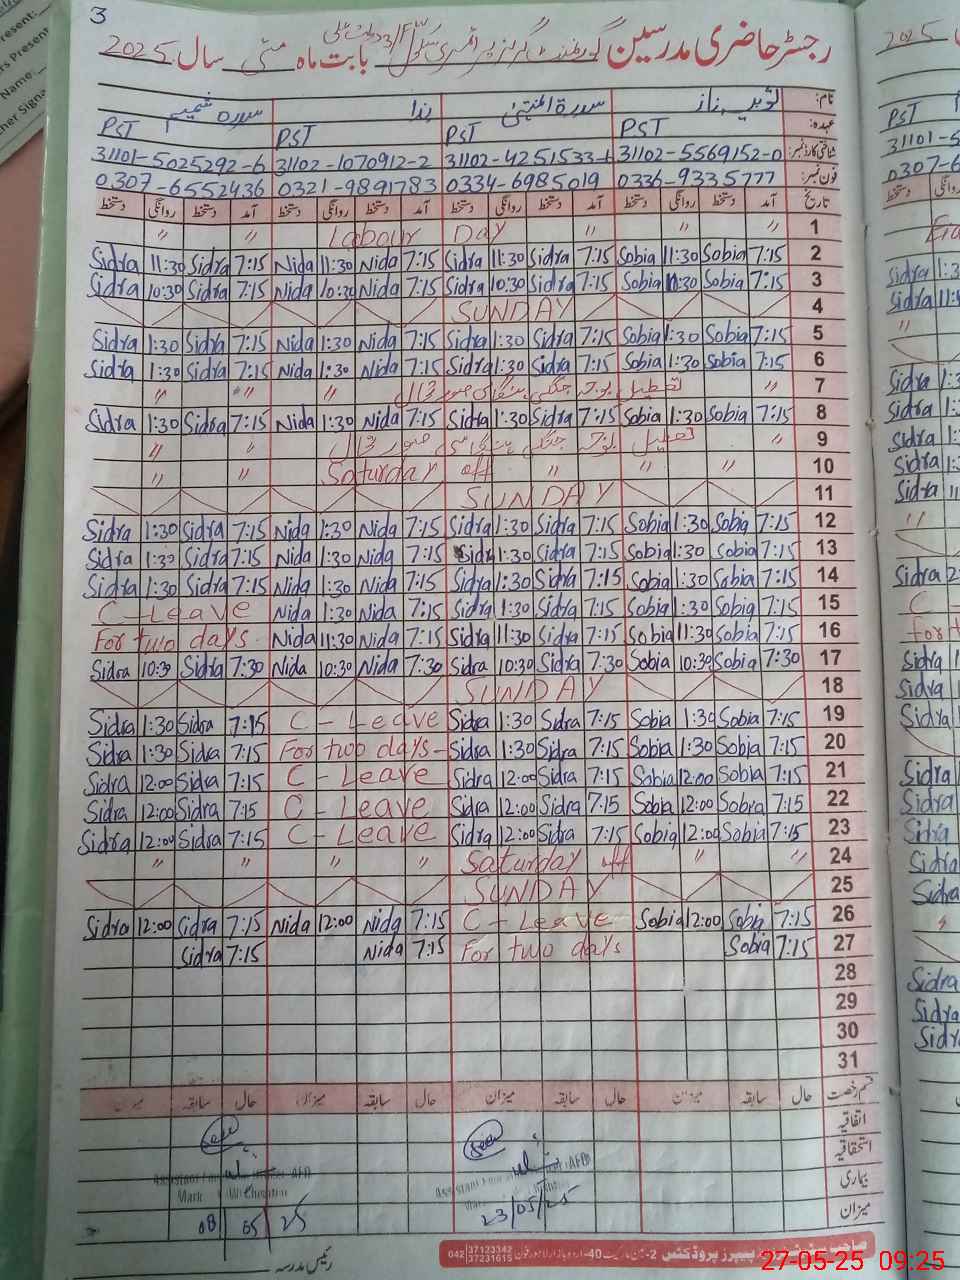 3
رجسٹر حاضری مدرسین گورنمنٹ گرلز پرائمری سکول بابت ماہ مئی سال 2025
نام: ثوبیہ ناز سدرۃ المنتہیٰ ندا سدرہ شمیم
عہدہ: PST PST PST PST
شناختی کارڈ نمبر: 31102-5569152-0 31102-4251533- 31102-1070912-2 31101-5025292-6
فون نمبر: 0336-9335777 0334-6985019 0321-9891783 0307-6552436
تاریخ آمد دستخط روانگی دستخط آمد دستخط روانگی دستخط آمد دستخط روانگی دستخط آمد دستخط روانگی دستخط
〃 〃 Labour DAY 〃 〃 〃 1
Sidra 11:30 Sidra 7:15 Nida 11:30 Nida 7:15 Sidra 11:30 Sidra 7:15 Sobia 11:30 Sobia 7:15 2
Sidra 10:30 Sidra 7:15 Nida 10:30 Nida 7:15 Sidra 10:30 Sidra 7:15 Sobia 10:30 Sobia 7:15 3
SUNDAY 4
Sidra 1:30 Sidra 7:15 Nida 1:30 Nida 7:15 Sidra 1:30 Sidra 7:15 Sobia 1:30 Sobia 7:15 5
Sidra 1:30 Sidra 7:15 Nida 1:30 Nida 7:15 Sidra 1:30 Sidra 7:15 Sobia 1:30 Sobia 7:15 6
〃 تعطیل بوجہ جنگی ہنگامی صورتحال 〃 〃 〃 7
Sidra 1:30 Sidra 7:15 Nida 1:30 Nida 7:15 Sidra 1:30 Sidra 7:15 Sobia 1:30 Sobia 7:15 8
〃 تعطیل بوجہ جنگی ہنگامی صورتحال 〃 〃 9
〃 〃 Saturday off 〃 〃 〃 10
SUNDAY 11
Sidra 1:30 Sidra 7:15 Nida 1:30 Nida 7:15 Sidra 1:30 Sidra 7:15 Sobia 1:30 Sobia 7:15 12
Sidra 1:30 Sidra 7:15 Nida 1:30 Nida 7:15 Sidra 1:30 Sidra 7:15 Sobia 1:30 Sobia 7:15 13
Sidra 1:30 Sidra 7:15 Nida 1:30 Nida 7:15 Sidra 1:30 Sidra 7:15 Sobia 1:30 Sobia 7:15 14
C-Leave Nida 1:30 Nida 7:15 Sidra 1:30 Sidra 7:15 Sobia 1:30 Sobia 7:15 15
For two days Nida 11:30 Nida 7:15 Sidra 11:30 Sidra 7:15 Sobia 11:30 Sobia 7:15 16
Sidra 10:30 Sidra 7:30 Nida 10:30 Nida 7:30 Sidra 10:30 Sidra 7:30 Sobia 10:30 Sobia 7:30 17
SUNDAY 18
Sidra 1:30 Sidra 7:15 C-Leave Sidra 1:30 Sidra 7:15 Sobia 1:30 Sobia 7:15 19
Sidra 1:30 Sidra 7:15 For two days- Sidra 1:30 Sidra 7:15 Sobia 1:30 Sobia 7:15 20
Sidra 12:00 Sidra 7:15 C-Leave Sidra 12:00 Sidra 7:15 Sobia 12:00 Sobia 7:15 21
Sidra 12:00 Sidra 7:15 C-Leave Sidra 12:00 Sidra 7:15 Sobia 12:00 Sobia 7:15 22
Sidra 12:00 Sidra 7:15 C-Leave Sidra 12:00 Sidra 7:15 Sobia 12:00 Sobia 7:15 23
〃 〃 〃 〃 Saturday off 〃 〃 24
SUNDAY 25
Sidra 12:00 Sidra 7:15 Nida 12:00 Nida 7:15 C-Leave Sobia 12:00 Sobia 7:15 26
Sidra 7:15 Nida 7:15 For two days Sobia 7:15 27
28
29
30
31
قسم رخصت حال سابقہ میزان حال سابقہ میزان حال سابقہ میزان حال سابقہ میزان
اتفاقیہ
استحقاقیہ
بیماری
میزان
Seen
Seen
08 05 25
23/05/25
رئیس مدرسہ
042 37123342 37231615
27-05-25 09:25